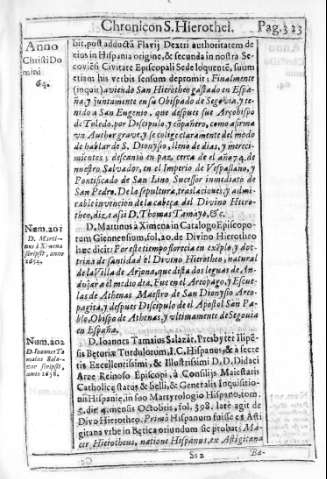 Chronicon S. Hierothei. Pag.323
Anno
Christi Do
mini
64.
bit, post adductā Flavij Dextri authoritatem de
eius in Hispania origine, & secunda in nostra Se-
coviēsi Civitate Episcopali Sede loquentē, suum
etiam his verbis sensum depromit: Finalmente
(inquit) aviendo San Hierotheo gastado en Espa-
ña, y juntamente en su Obispado de Segovia, y te-
nido a San Eugenio, que despues fue Arçobispo
de Toledo, por Discipulo, y cōpañero, como afirma
vn Author grave, y se colge claramente del modo
de hablar de S. Dionysio, lleno de dias, y mereci-
mientos, descansò en paz, cerca de el año 74. de
nuestro Salvador, en el Imperio de Vespasiano, y
Pontificado de San Lino, Sucessor inmediato de
San Pedro. De la sepultura, traslaciones, y admi-
rable invencion de la cabeça del Divino Hiero-
theo, diz, a asi D. Thomas Tamayo, &c.
Num.201
D. Marti-
nus à Ximena
scripsit, anno
D. Martinus à Ximena in Catalogo Episcopo-
rum Giennensium, fol. 20. de Divino Hierotheo
luc dicit: Por este tiempo florecia en exēplo, y doc-
trina de santidad el Divino Hierotheo, natural
de la Villa de Arjona, que dista dos leguas de An-
dujar a el medio dia. Fue en el Areopago, y Escue-
las de Athenas Maestro de San Dionysio Areo-
pagita, y despues Discipulo de el Apostol San Pa-
blo, Obispo de Athenas, y vltimamente de Segovia
en España.
Num.202
D. Ioannes Ta
maius Sala-
zar scripsit,
anno 1658.
D. Ioannes Tamaius Salazar, Presbyter Ilipē-
sis Bęturiæ Turdulorum, I.C. Hispanus, & a secre
tis Excellentissimi, & Illustrissimi D.D. Didaci
Arze Reinoso Episcopi, à Consilijs Maiestatis
Catholicę status & belli, & Generalis Inquisitio-
nis Hispanię, in suo Martyrologio Hispano, tom.
5. die 4. mensis Octobris, fol. 398. latè agit de
Divo Hierotheo. Primò Hispanum fuisse ex Asti-
gitana vrbe in Bętica oriundum sic probat: Ma-
cer Hierotheus, natione Hispanus, ex Astigitana
Ss 2 Bæ-